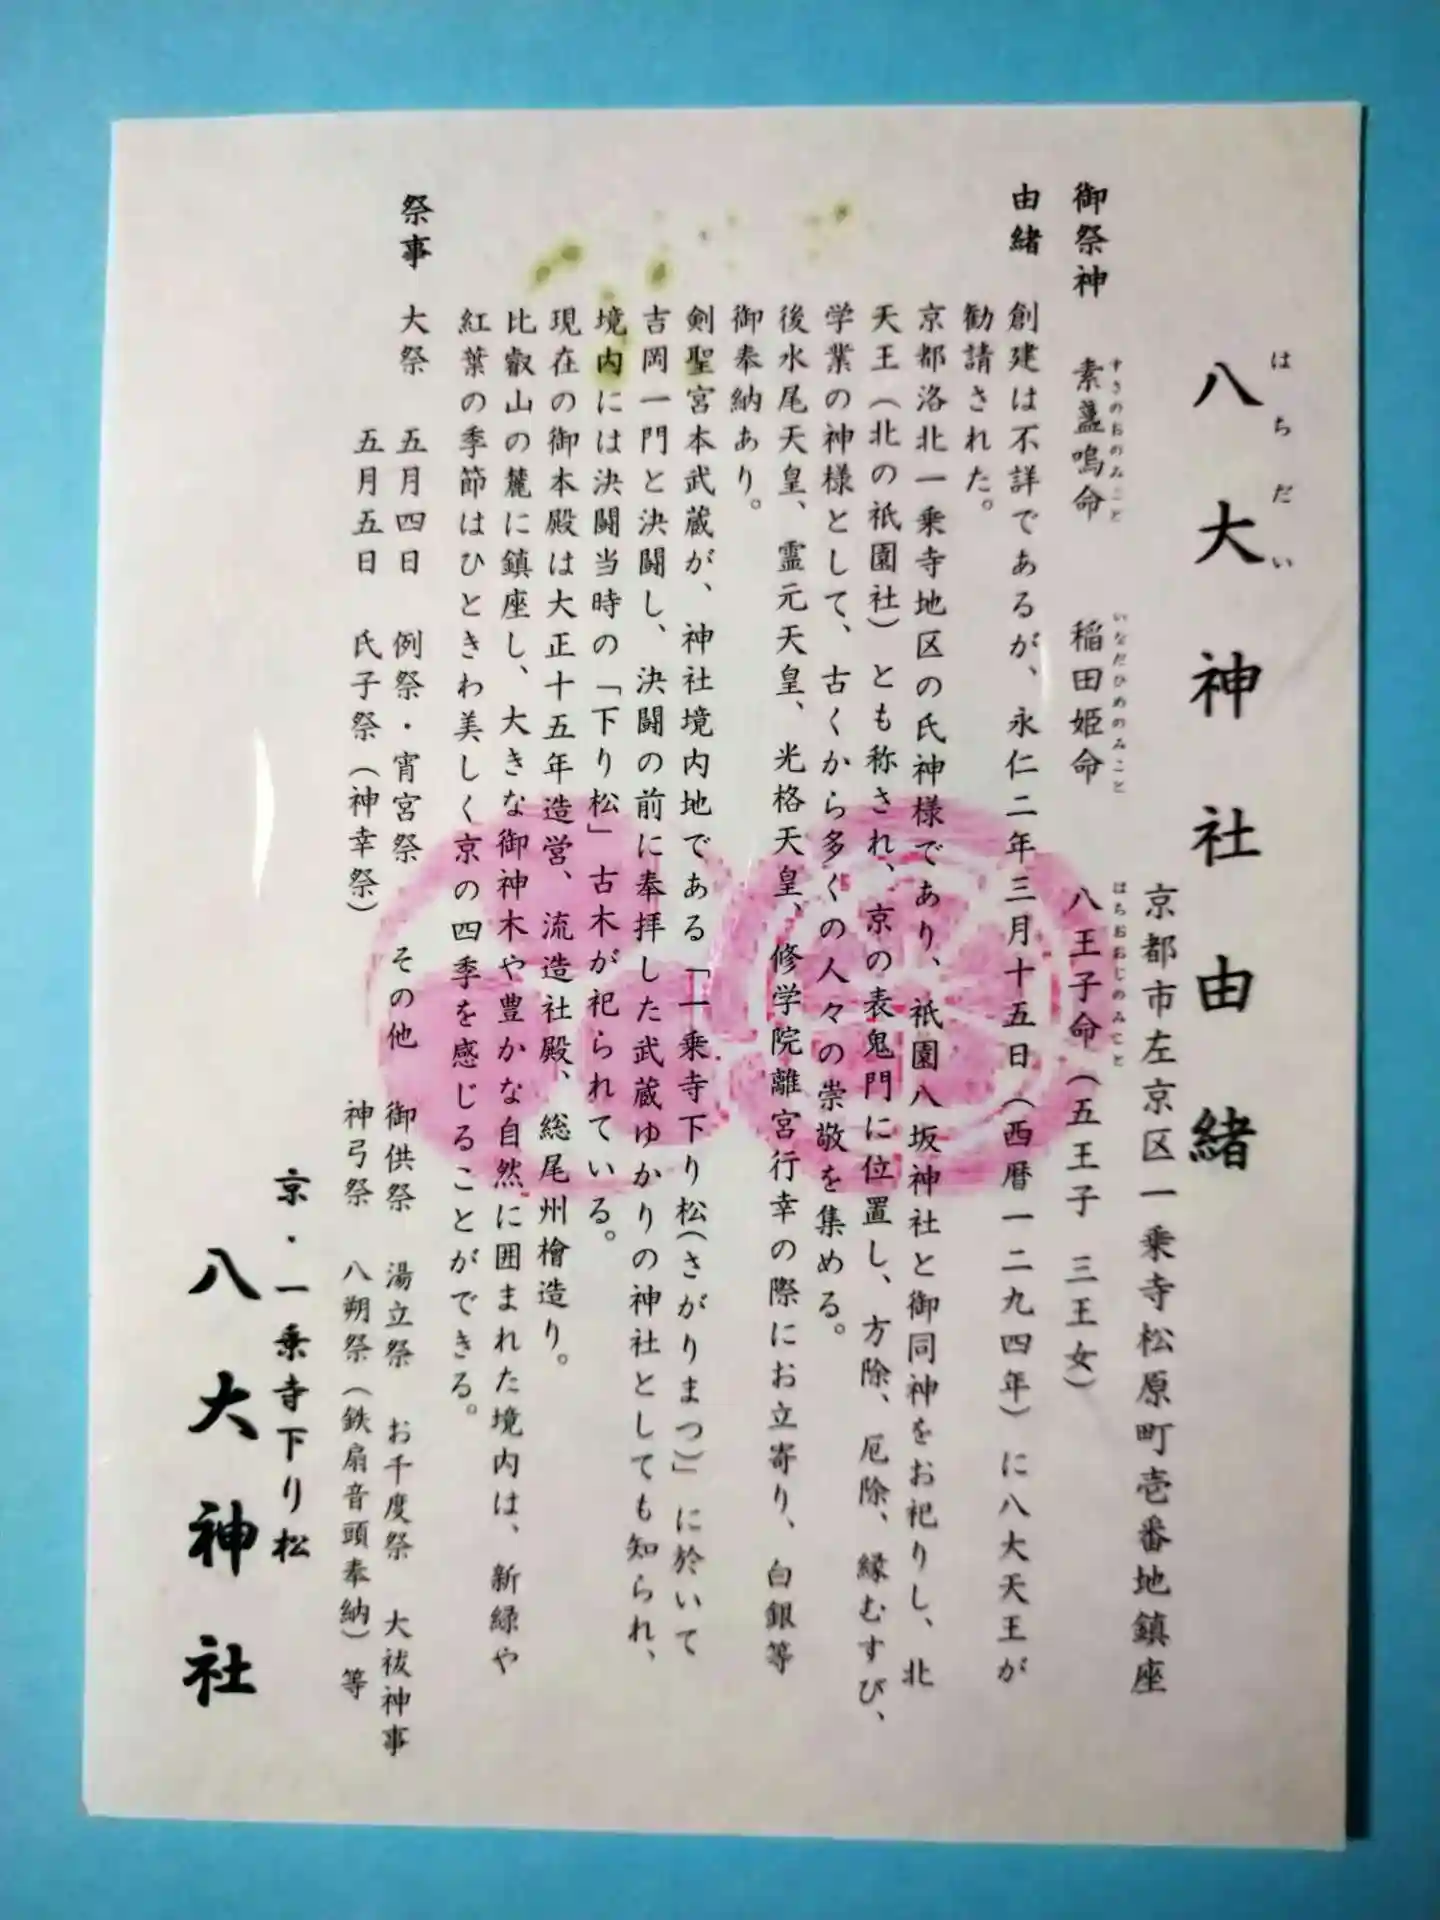 八大神社由緒
はちだい
京都市左京区一乗寺松原町壱番地鎮座
御祭神 素盞嗚命 稲田姫命 八王子命（五王子 三王女）
すさのおのみこと いなだひめのみこと はちおおじのみこと
由緒 創建は不詳であるが、永仁二年三月十五日（西暦一二九四年）に八大天王が
勧請された。
京都洛北一乗寺地区の氏神様であり、祇園八坂神社と御同神をお祀りし、北
天王（北の祇園社）とも称され、京の表鬼門に位置し、方除、厄除、縁むすび、
学業の神様として、古くから多くの人々の崇敬を集める。
後水尾天皇、霊元天皇、光格天皇、修学院離宮行幸の際にお立寄り、白銀等
御奉納あり。
剣聖宮本武蔵が、神社境内地である「一乗寺下り松（さがりまつ）」に於いて
吉岡一門と決闘し、決闘の前に奉拝した武蔵ゆかりの神社としても知られ、
境内には決闘当時の「下り松」古木が祀られている。
現在の御本殿は大正十五年造営、流造社殿、総尾州檜造り。
比叡山の麓に鎮座し、大きな御神木や豊かな自然に囲まれた境内は、新緑や
紅葉の季節はひときわ美しく京の四季を感じることができる。
祭事 大祭 五月四日 例祭・宵宮祭 その他 御供祭 湯立祭 お千度祭 大祓神事
五月五日 氏子祭（神幸祭） 神弓祭 八朔祭（鉄扇音頭奉納）等
京・一乗寺下り松
八大神社